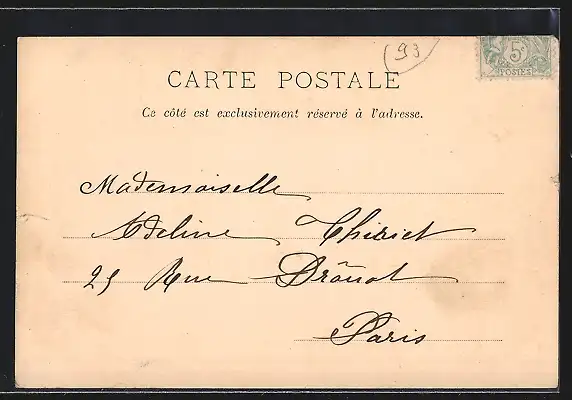 93
5c
POSTES
CARTE POSTALE
Ce côté est exclusivement réservé à l'adresse.
Mademoiselle
Adeline Thiriet
25 Rue Drouot
Paris